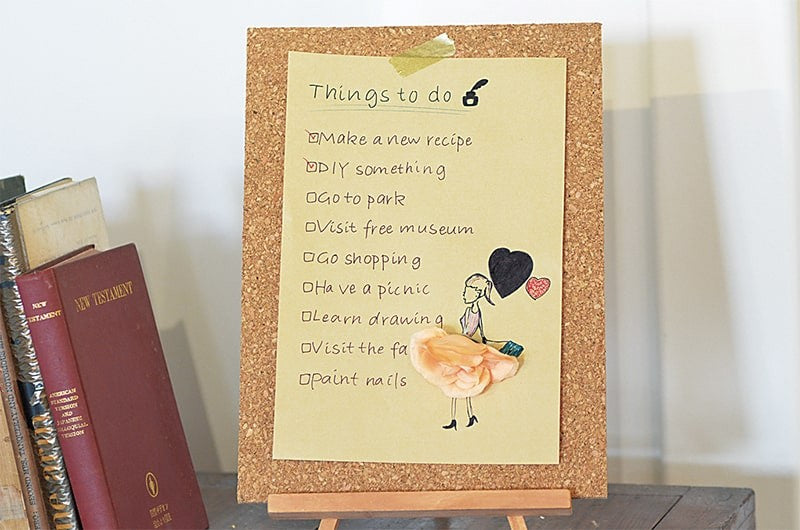 Things to do
Make a new recipe
DIY something
Go to park
Visit free museum
Go shopping
Have a picnic
Learn drawing
Visit the fa
paint nails
NEW TESTAMENT
NEW
TESTAMENT
AMERICAN
STANDARD
VERSION
AND
JAPANESE
COLLOQUIAL
VERSION